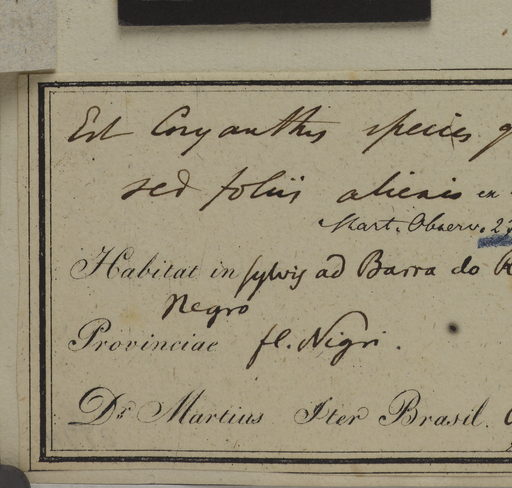 Est Coryanthis species
sed foliis alienis en
Mart. Observ. 23
Habitat in sylvis ad Barra do R
Negro
Provinciae fl. Nigri.
Dr. Martius Iter Brasil.